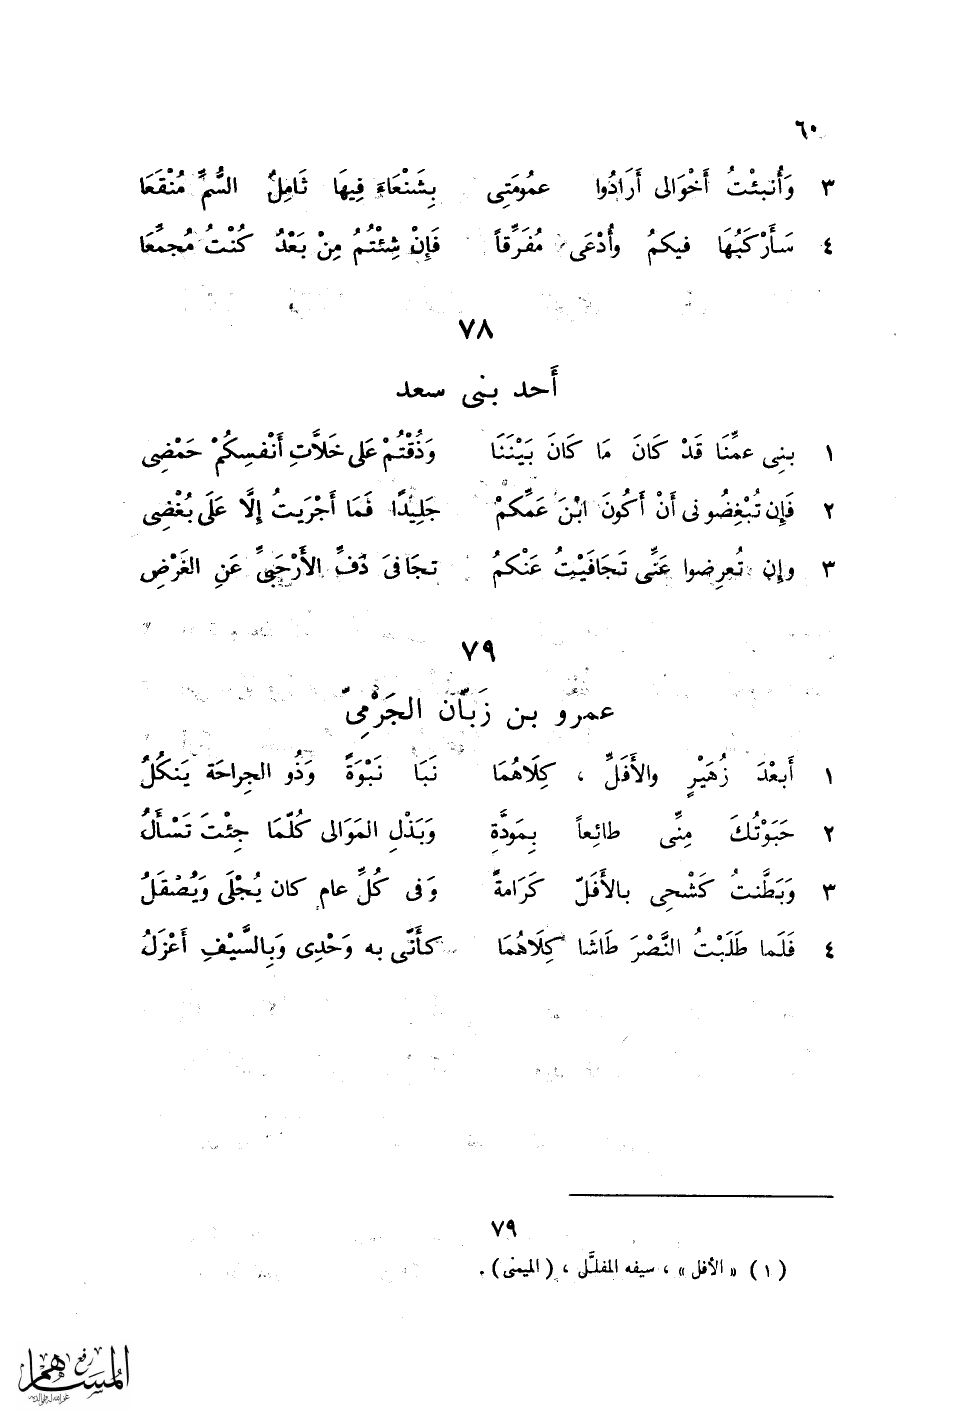 ٦٠
٣ وَأُنبئْتُ أَخْوَالى أَرَادُوا عمُومَتِى بِشَنْعَاءَ فِيهَا ثَامِلُ السُّمِّ مُنْقَعَا
٤ سَأَرْكَبُهَا فيكمُ وأُدْعَى مُفَرِّقاً فَإِنْ شِئْتُمُ مِنْ بَعْدُ كُنْتُ مُجمِّعَا
٧٨
أَحد بنى سعد
١ بنِى عمِّنَا قَدْ كَانَ مَا كَانَ بَيْنَنَا وَذُقْتُمْ عَلى خَلاَّتِ أَنْفسِكُمْ حَمْضِى
٢ فَإِن تُبْغِضُونى أَنْ أَكُونَ ابْنَ عَمِّكمْ جَلِيدًا فَمَا أَجْرَيتُ إِلَّا عَلَى بُغْضِى
٣ وإِن تُعرِضوا عَنِّى تَجَافَيْتُ عَنْكمُ تجَافىَ دَفِّ الأَرْحَبىِّ عَنِ الغَرْضِ
٧٩
عمرو بن زَبَّان الجَرْمِىّ
١ أَبعْدَ زُهَيْرٍ والأَفَلِّ ، كِلَاهُمَا نَبَا نَبْوَةً وَذُو الجِراحَة يَنكُلُ
٢ حَبَوْتُكَ مِنِّى طائِعاً بِمَودَّةِ وَبَذْلِ المَوَالى كُلّمَا جِئْتَ تَسْأَلُ
٣ وَبَطَّنتُ كَشْحِى بالأَفَلّ كَرَامةً وَفى كُلِّ عام كان يُجْلَى وَيُصْقَلُ
٤ فَلَما طَلَبْتُ النَّصْرَ طَاشَا كِلَاهُمَا كأَنّى به وَحْدِى وَبِالسَّيْفِ أَعْزَلُ
٧٩
(١) «الأفل» ، سيفه المفلَّل ، (الميمنى) .